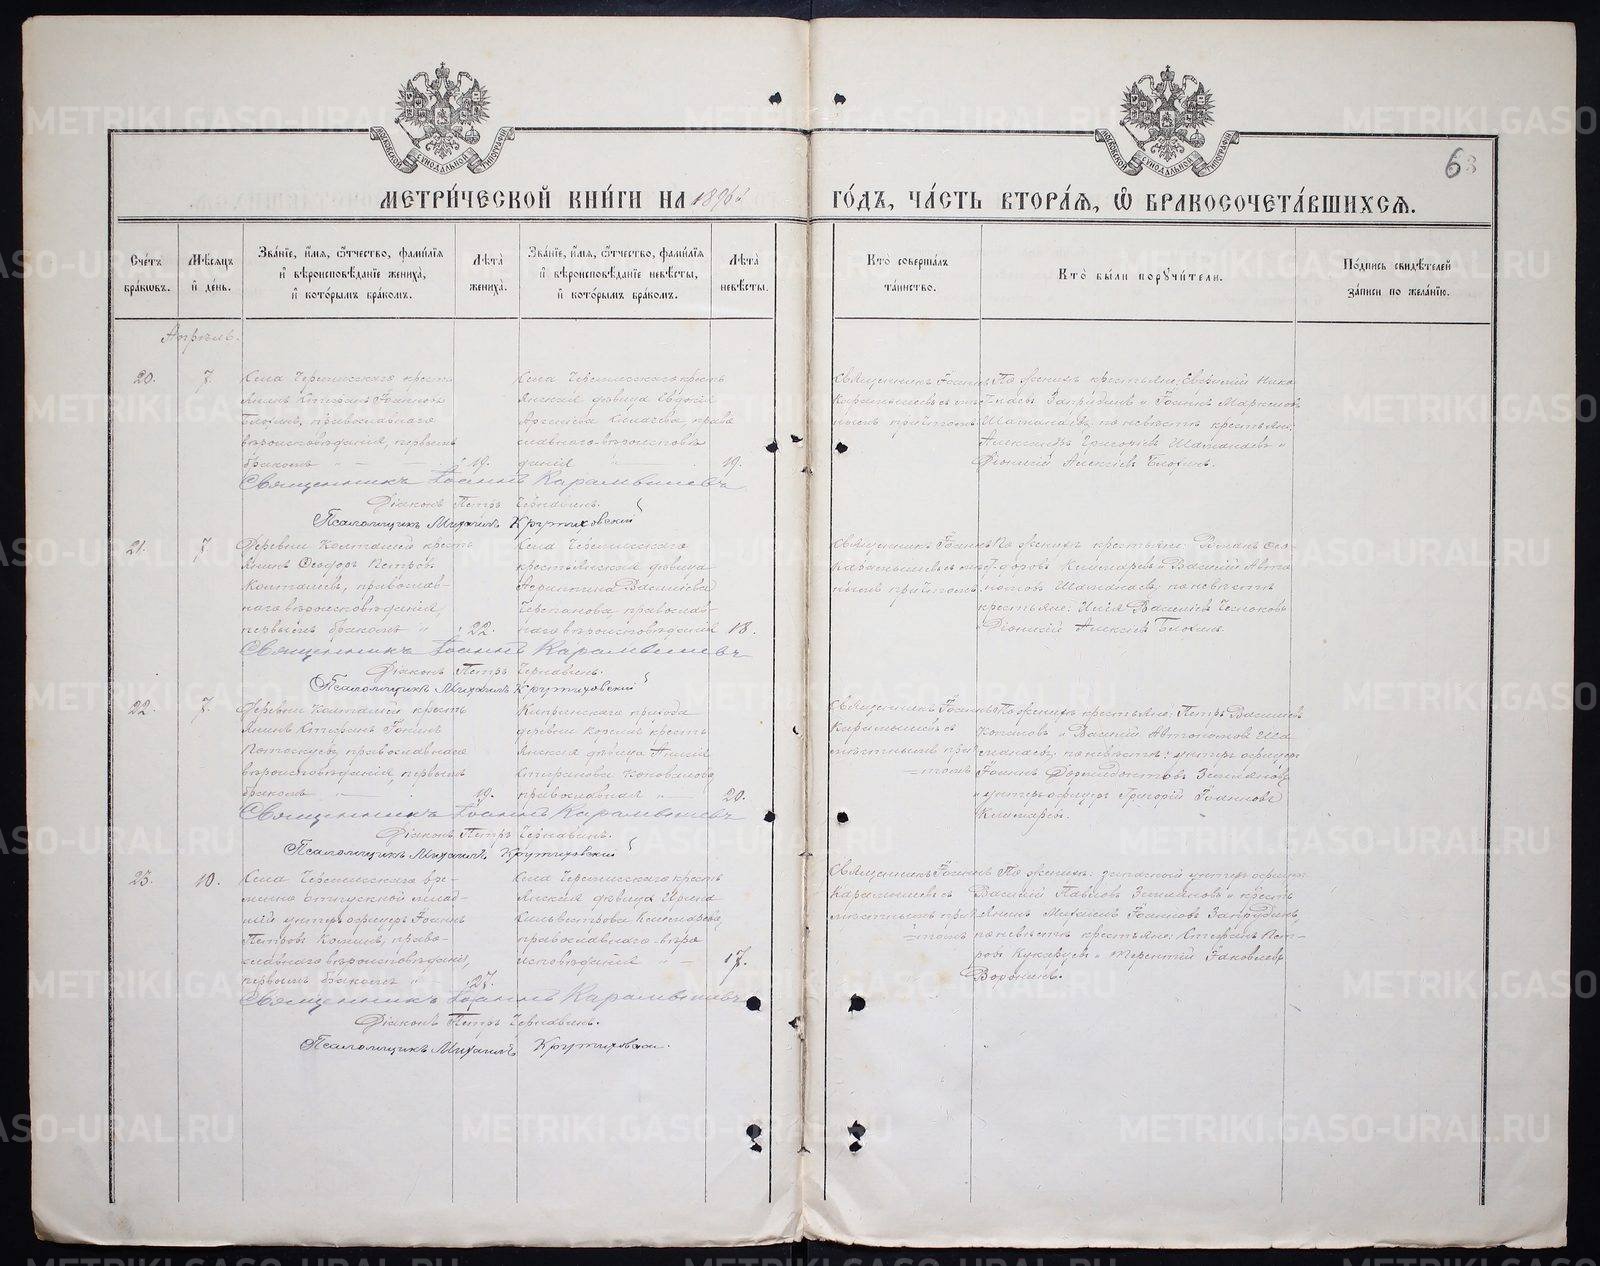 МЕТРИ́ЧЕСКОЙ КНИ́ГИ НА 1896й
ГО́ДЪ, ЧА́СТЬ ВТОРА́Я, Ѽ БРАКОСОЧЕТА́ВШИХСЯ.
63
Сче́тъ бра́кѡвъ.
Мѣ́сяцъ и́ де́нь.
Зва́нїе, и́мя, ѻ́тчество, фами́лїя и́ вѣроисповѣ́данїе жениха̀, и́ кото́рымъ бра́комъ.
Лѣта̀ жениха̀.
Зва́нїе, и́мя, ѻ́тчество, фами́лїя и́ вѣроисповѣ́данїе невѣ́сты, и́ кото́рымъ бра́комъ.
Лѣта̀ невѣ́сты.
Кто̀ соверша́лъ та́инство.
Кто̀ бы́ли порꙋчи́тели.
По́дпись свидѣ́телей за́писи по жела́нїю.
Апрѣль.
20.
7.
Села Черемисскаго кресть
янинъ Стефанъ Іоанновъ
Блохинъ, православнаго
вѣроисповѣданія, первымъ
бракомъ
19.
Села Черемисскаго кресть
янская дѣвица Евдокія
Арсеніева Килачева, право
славнаго вѣроисповѣ
данія
19.
Священникъ Іоаннъ
Карамышевъ съ
причтомъ
По женихѣ крестьяне: Евгеній Никол
Запрудинъ и Іоаннъ Марксиновъ
Шаманаевъ, по невѣстѣ крестьяне:
Александръ Григоріевъ Шаманаевъ и
Діонисій Алексіевъ Блохинъ.
Священникъ Іоаннъ Карамышевъ
Діаконъ Петръ Чернавинъ.
Псаломщикъ Михаилъ Крутиховскій
21.
7.
Деревни Колташей кресть
янинъ Ѳеодоръ Петровъ
Колташевъ, православ-
наго вѣроисповѣданія,
первымъ бракомъ
22.
Села Черемисскаго
крестьянская дѣвица
Агриппина Василіева
Черепанова, православ-
наго вѣроисповѣданія
18.
Священникъ Іоаннъ
Карамышевъ съ
причтомъ.
По женихѣ крестьяне: Романъ Ѳео-
доровъ и Василій Авто
номовъ Шаманаевъ; по невѣстѣ
крестьяне: Илія Василіевъ Чесноковъ
и Діонисій Алексіевъ Блохинъ.
Священникъ Іоаннъ Карамышевъ
Діаконъ Петръ Чернавинъ.
Псаломщикъ Михаилъ Крутиховскій
22.
7.
Деревни Колташей кресть
янинъ Стефанъ Іоаннъ
Потоскуевъ, православнаго
вѣроисповѣданія, первымъ
бракомъ
19.
Липринскаго прихода
деревни кресть
янская дѣвица
Стефанова Коновалова
православная
20.
Священникъ Іоаннъ
Карамышевъ съ
мѣстнымъ прич
=томъ
По женихѣ крестьяне: Петръ Василіевъ
и Василій Автономовъ Ша
манаевъ; по невѣстѣ: унтеръ офицеръ
Іоаннъ Земляновъ
и унтеръ офицеръ Григорій Іоанновъ
Священникъ Іоаннъ Карамышевъ
Діаконъ Петръ Чернавинъ.
Псаломщикъ Михаилъ Крутиховскій
23.
10.
Села Черемисскаго вре-
менно отпускной млад-
шій унтеръ офицеръ Іоаннъ
Петровъ право-
славнаго вѣроисповѣданія,
первымъ бракомъ
27.
Села Черемисскаго кресть
янская дѣвица Ирина
Сильвестрова
православнаго вѣро
исповѣданія
17.
Священникъ Іоаннъ
Карамышевъ съ
мѣстнымъ прич
=томъ
По женихѣ: запасной унтеръ офицеръ
Василій Павловъ Земляновъ и кресть
янинъ Михаилъ Іоанновъ Запрудинъ,
по невѣстѣ крестьяне: Стефанъ Пет-
ровъ и Терентій Іаковлевъ
Воронинъ.
Священникъ Іоаннъ Карамышевъ
Діаконъ Петръ Чернавинъ.
Псаломщикъ Михаилъ Крутиховскій.
METRIKI.GASO-URAL.RU